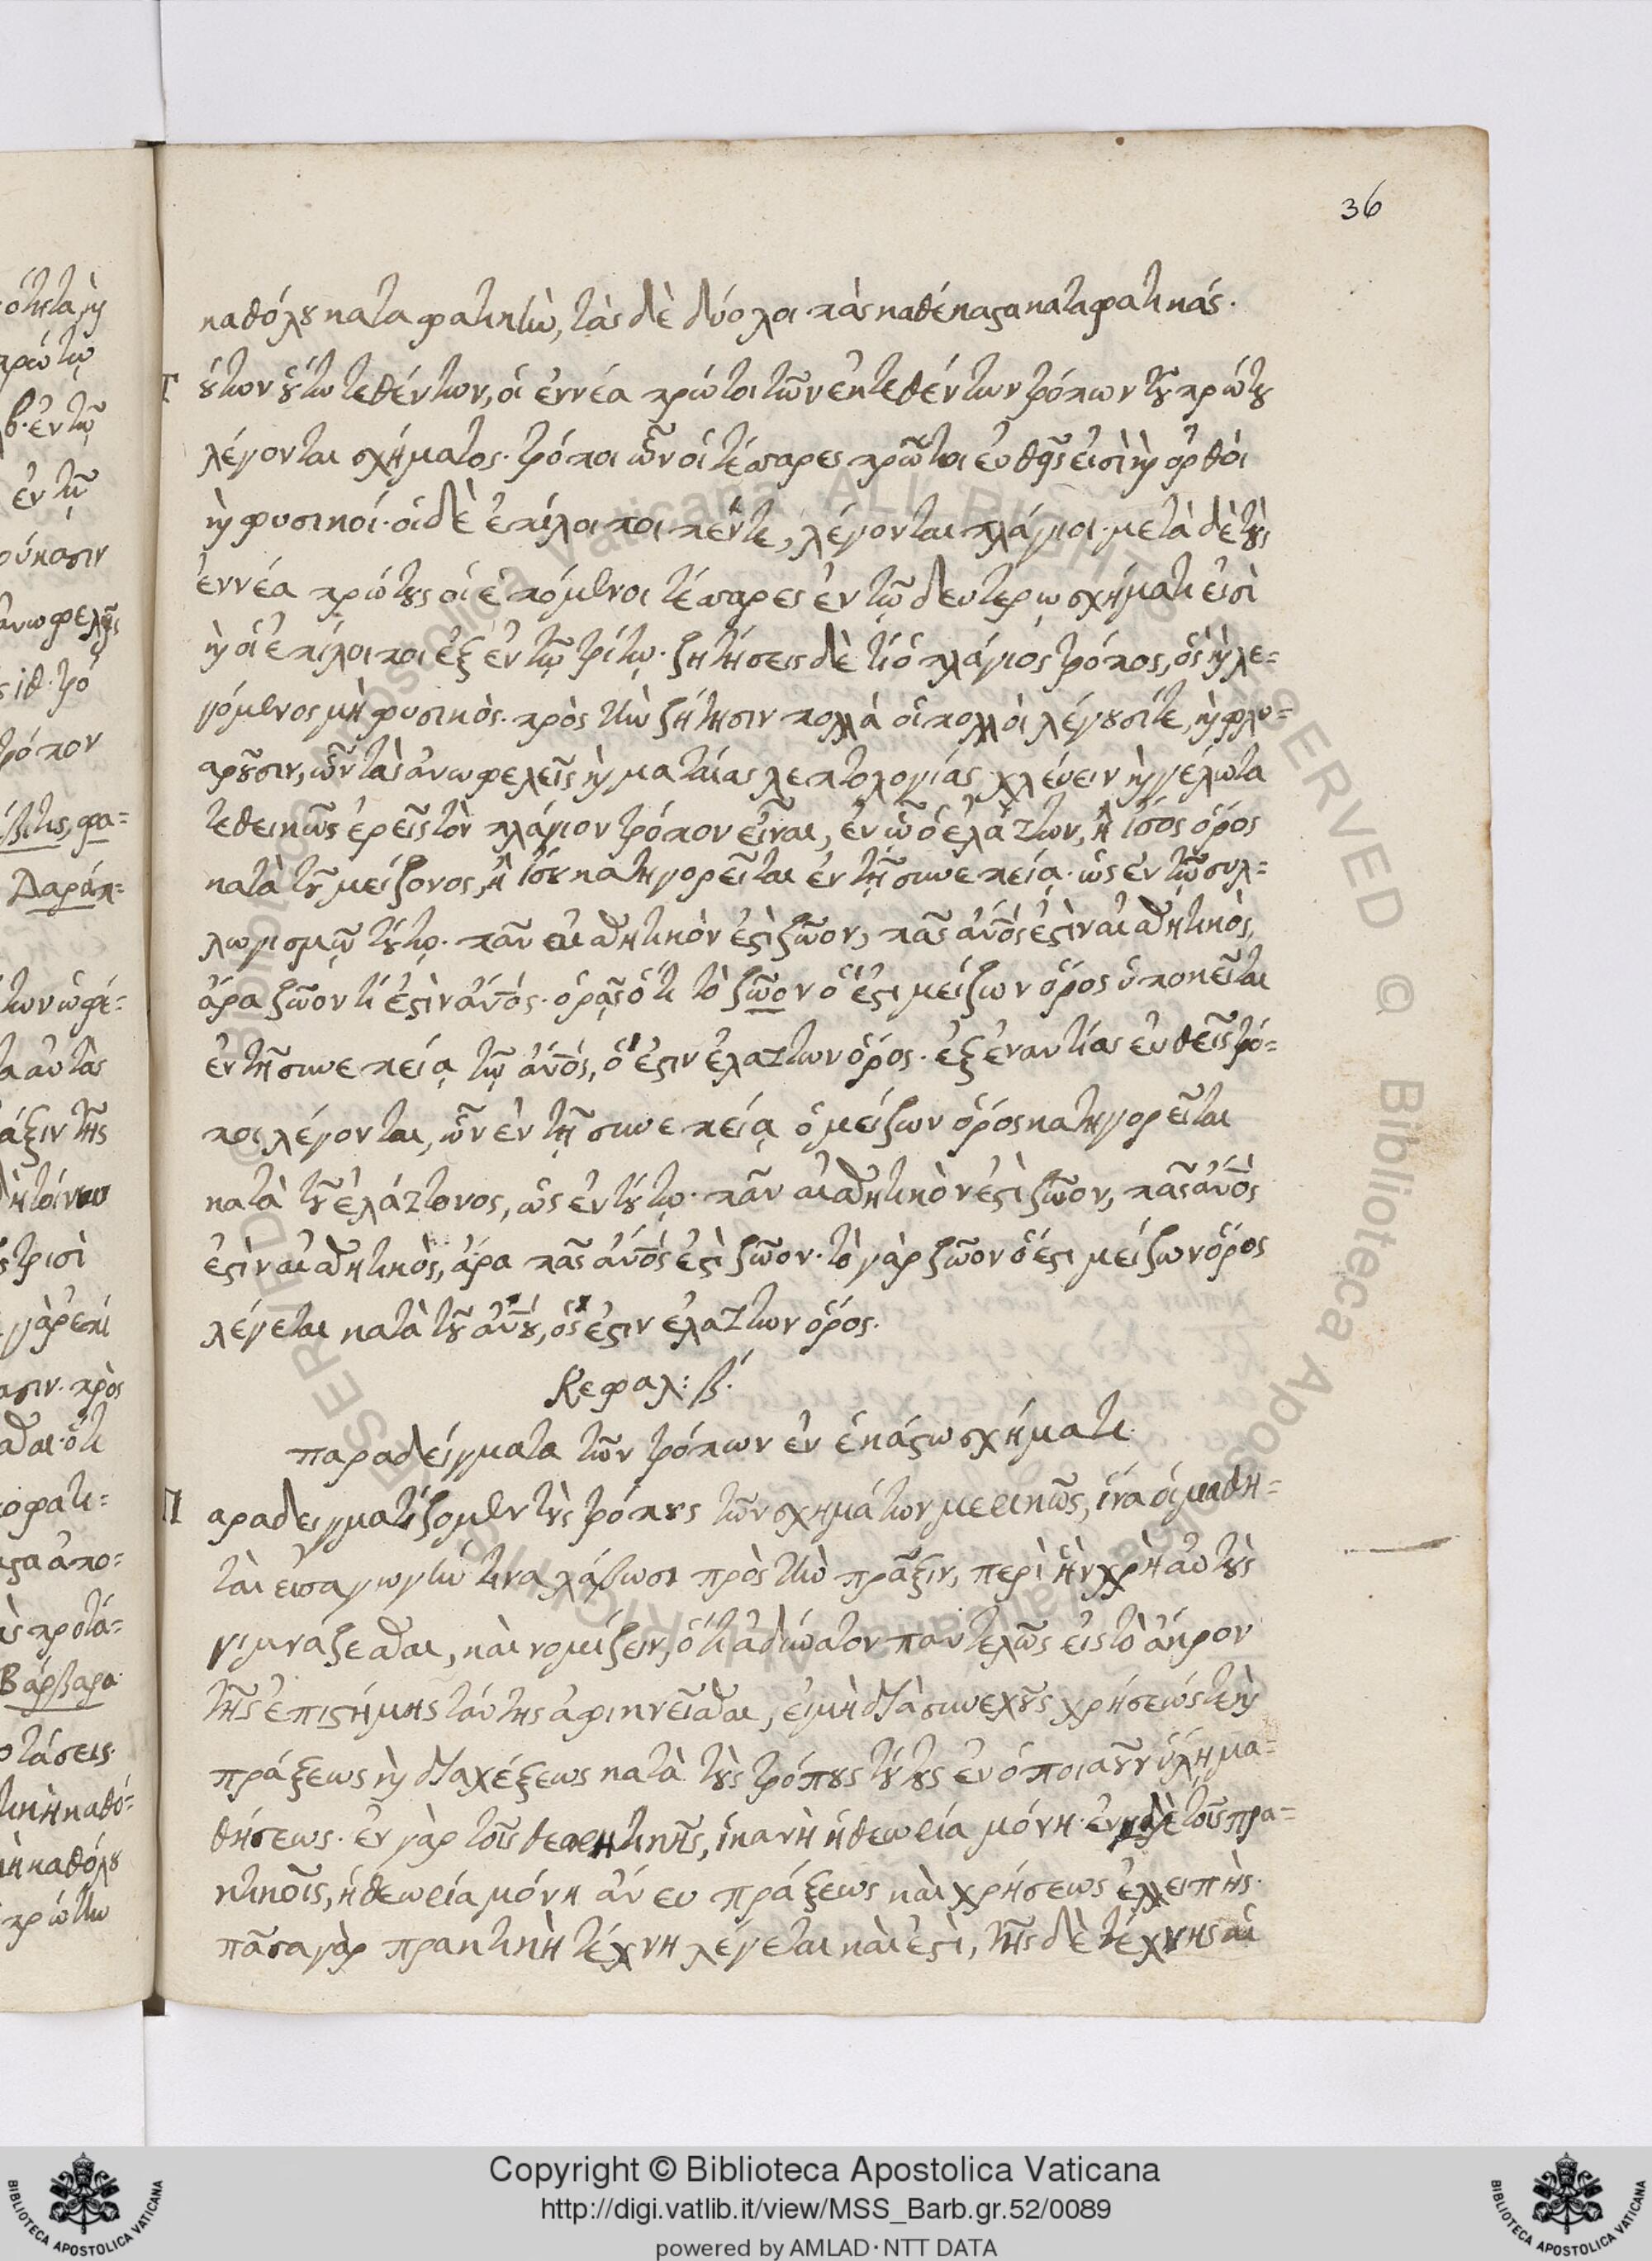 36
καθόλου καταφατικὴν, τὰς δὲ δύο λοιπὰς καθέκαστα καταφατικάς.
Τούτων οὕτω τεθέντων, οἱ ἐννέα πρώτοι τῶν ἐκτεθέντων τρόπων τοῦ πρώτου
λέγονται σχήματος. τρόποι ὧν οἱ τέσσαρες πρῶτοι εὐθεῖς εἰσὶ καὶ ὀρθοὶ
καὶ φυσικοί. οἱ δὲ ἐπίλοιποι πέντε, λέγονται πλάγιοι. μετὰ δὲ τοὺς
ἐννέα πρώτους οἱ ἑπόμενοι τέσσαρες ἐν τῷ δευτέρῳ σχήματι εἰσὶ
καὶ οἱ ἐπίλοιποι ἓξ ἐν τῷ τρίτῳ. ζητήσεις δὲ τί ὁ πλάγιος τρόπος, ὁς καὶ λε=
γόμενος μὴ φυσικὸς. πρὸς τὴν ζήτησιν πολλά οἱ πολλοὶ λέγουσίτε, καὶ φλυ=
αροῦσιν, ὧν τὰς ἀνωφελεῖς καὶ ματαίας λεπτολογίας χλέυειν καὶ γέλωτα
τεθεικῶς ἐρεῖς τὸν πλάγιον τρόπον εἶναι, ἐν ᾧ ὁ ἐλάττων, ἢ ἴσος ὅρος
κατὰ τοῦ μείζονος, ἢ ἴσου κατηγορεῖται ἐν τῇ συνεπείᾳ. ὡς ἐν τῷ συλ=
λωγισμῷ τούτῳ. πᾶν αἰσθητικόν ἐστὶ ζῶον, πᾶς ἄνος ἐστὶν αἰσθητικὸς,
ἄρα ζῶον τί ἐστὶν ἄνος. ὁρᾷς ὅτι τὸ ζῶον ὅ ἐστι μείζων ὅρος ὑποκεῖται
ἐν τῇ συνεπείᾳ τῷ ἄνος, ὅ ἐστιν ἐλάττων ὅρος. ἐξ ἐναντίας εὐθεῖς τρό=
ποι λέγονται, ὧν ἐν τῇ συνεπείᾳ ὁ μείζων ὅρος κατηγορεῖται
κατὰ τοῦ ἐλάττονος, ὡς ἐν τούτῳ. πᾶν αἰσθητικὸν ἐστὶ ζῶον, πᾶς ἄνος
ἐστὶν αἰσθητικὸς, ἄρα πᾶς ἄνος ἐστὶ ζῶον. τὸ γὰρ ζῶον ὅ ἐστι μείζων ὅρος
λέγεται κατὰ τοῦ ἄνου, ὅς ἐστιν ἐλάττων ὅρος.
Κεφαλ: β.
παραδείγματα τῶν τρόπων ἐν ἑκάστῳ σχήματι
Παραδειγματίζομεν τοὺς τρόπους τῶν σχημάτων μερικῶς, ἵνα οἱ μαθη=
ταὶ εἰσαγωγήν τινα λάβωσι πρὸς τὴν πρᾶξιν, περὶ ἣν χρὴ αὐτοὺς
γιμνάζεσθαι, καὶ νομίζειν, ὅτι ἀδύνατον παντελῶς εἰς τὸ ἄκρον
τῆς ἐπιστήμης ταύτης ἀφικνεῖσθαι, εἰμὴ διὰ συνεχοῦς χρήσεώς τε καὶ
πράξεως καὶ διαχέξεως κατὰ τοὺς τρόπους τούτους ἐν ὁποιαοῦν ὕλῃ μα=
θήσεως. ἐν γὰρ τοῖς θεορητικοῖς, ἱκανὴ ἡ θεωρία μόνη. ἐν δὲ τοῖς πρα=
κτικοῖς, ἡ θεωρία μόνη ἄνευ πράξεως καὶ χρήσεως ἐλλειπὴς.
πᾶσα γὰρ πρακτικὴ τέχνη λέγεται καὶ ἐστὶ, τῆς δὲ τέχνης αἱ
Copyright © Biblioteca Apostolica Vaticana
http://digi.vatlib.it/view/MSS_Barb.gr.52/0089
powered by AMLAD·NTT DATA